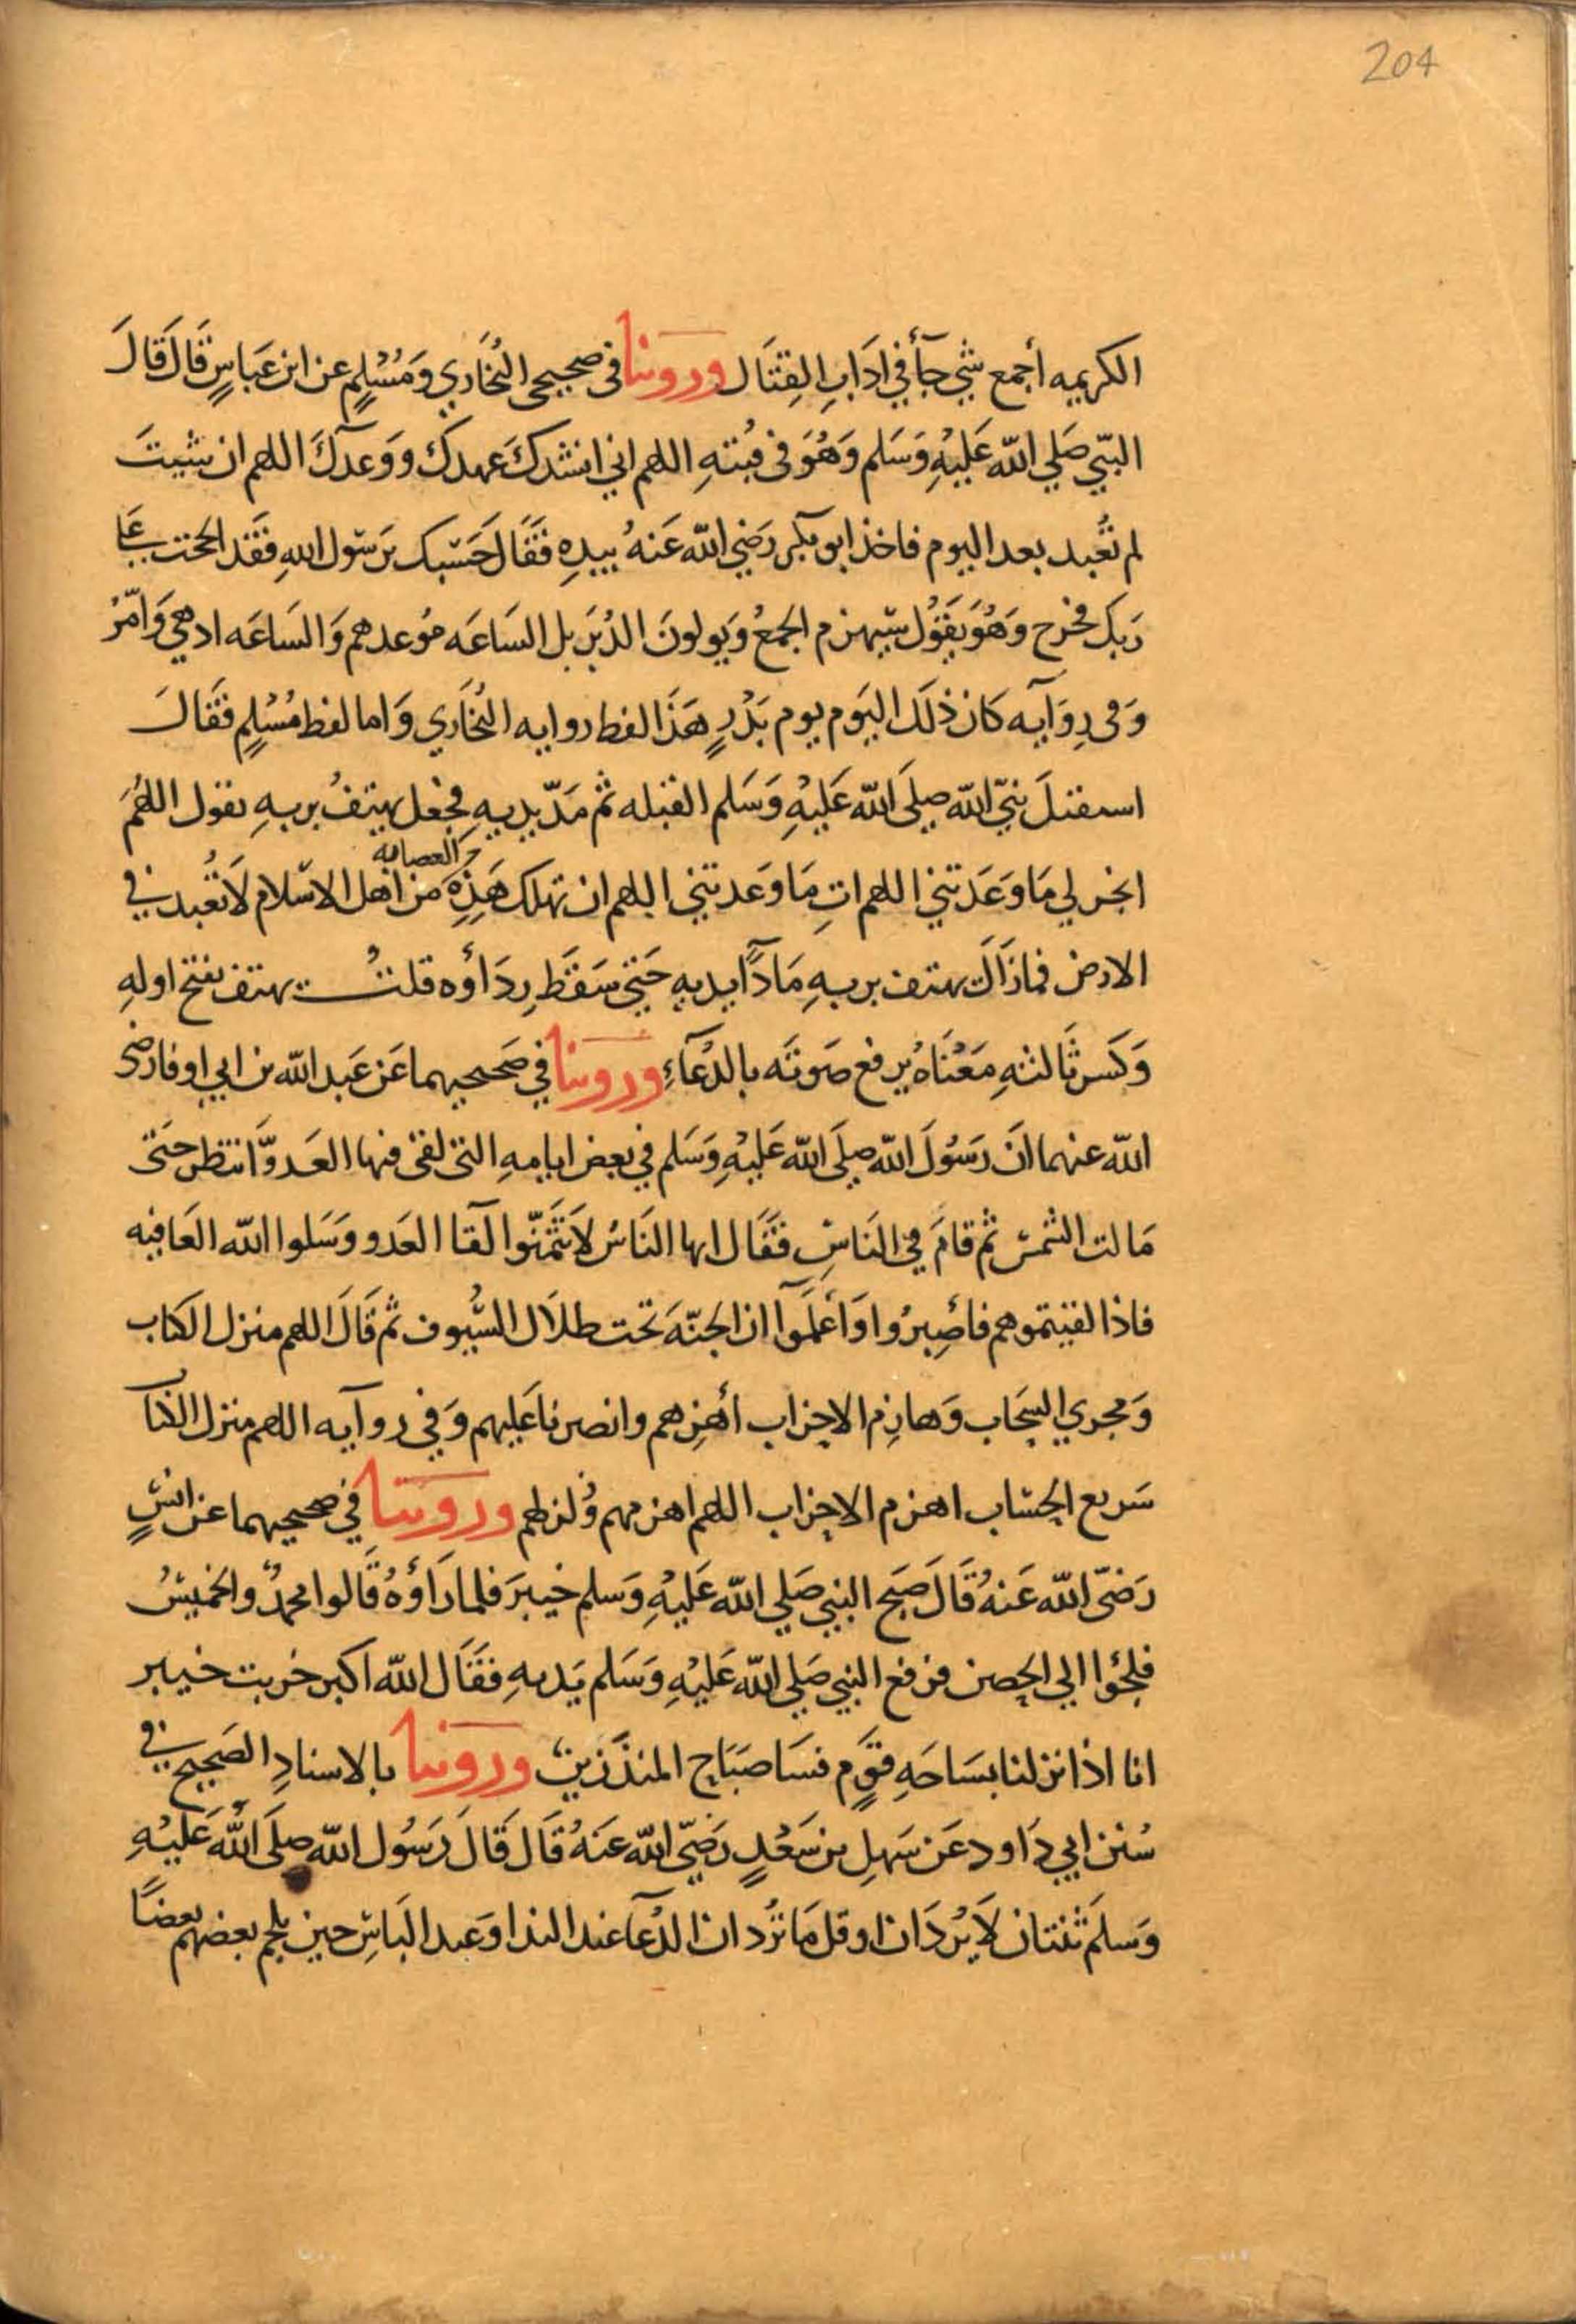 204
الكريمه أجمع شي جآ في ادَابِ القِتَال وروينا في صحيحي البُخَاري وَمُسْلِمٍ عن ابن عَبَاسٍ قَالَ قَالَ
النبّي صَلي الله عَلَيْهِ وَسَلم وَهُوَ في قُبتهِ اللهم اني انشدكَ عهدكَ ووَعدكَ اللهم ان شيتَ
لم تُعْبد بعد اليوم فاخذ ابو بكر رَضي الله عَنهُ بيدِهِ فقَالَ حَسْبك يَرسول اللهِ فقَد الححت عَلى
رَبكَ فخرج وَهُوَ يقَوُل سَيهزم الجمعُ وَيولونَ الدُبَر بل السَاعَه مَوعدهم وَالسَاعَه ادهي وَامّرُ
وَفي رِوَايه كَان ذلَك اليَوم يوم بَدْرٍ هَذَا لفظ روايه البُخَاري وَاما لفظ مُسْلِمٍ فقَالَ
استقبلَ نبيّ الله صلي الله عَليْهِ وَسَلم القبله ثم مَدّ يديهِ فجعل يهتفُ بربهِ يقول اللهُمَ
العصابه
انجز لي مَا وَعَدتني اللهم اتِ مَا وَعدتني اللهم ان تهلك هَذِهِ من اهل الاسْلام لَا تُعْبد في
الارض فمازَالَ يهتف بربهِ مَادًا يديهِ حَتي سَقَطَ رِدَاؤه قلتُ يهتف بفتح اولهِ
وَكسر ثَالثهِ مَعْنَاهُ يرفع صَوتَه بالدُعَآءِ وروينا في صَحيحيهما عَن عَبد الله بن ابي اوفا رضي
الله عنهما انَ رَسُولَ الله صلَى الله عَليْهِ وَسَلم في بعض ايامهِ التي لقي فيها العَدوَّ انتظر حَتى
مَالت الشمسْ ثم قامَ في النَاسِ فقَال ايها النَاسُ لاَ تتَمنّوا لقآ العَدو وَسَلوا الله العَافيه
فاذا لقيتموهم فاصِبرُوا وَاعْلمَوا ان الجنّهَ تحت ظلاَل السُّيوف ثم قَالَ اللهم منزل الكتاب
وَمجري السَحَاب وَهازِم الاحزاب أهزِمهم وانصرنا عَليهم وَفي روآيه اللهم منزل الكتاب
سَريع الحسَاب اهزم الاحزاب اللهم اهزمهم وَزلزلهم وروينا في صحيحيهما عن انسٍ
رَضّي الله عَنهُ قَالَ صَبَح النبي صَلي الله عَليْهِ وَسلم خيبرَ فلما رَاوْهُ قَالوا محمدٌ والخميسُ
فلجؤا الي الحصن فرفع النبي صَلي الله عَليْهِ وَسَلم يَديهِ فقَال الله اكبر خربت خيبر
انا اذا نزلنا بسَاحَهِ قوَمٍ فسَا صَبَاح المنذَرين وروينا بالاسنادِ الصَحيح في
سُنن ابي دَاود عَن سَهلِ بن سَعْدٍ رَضيّ الله عَنهُ قَال قَالَ رَسُول الله صلَى الله عَليْهِ
وَسلمَ ثنتان لاَ يُردَان او قل مَا تُردان الدُعَآ عند الندا وَعند البَاسِ حين يلجم بعضهم بعضًا